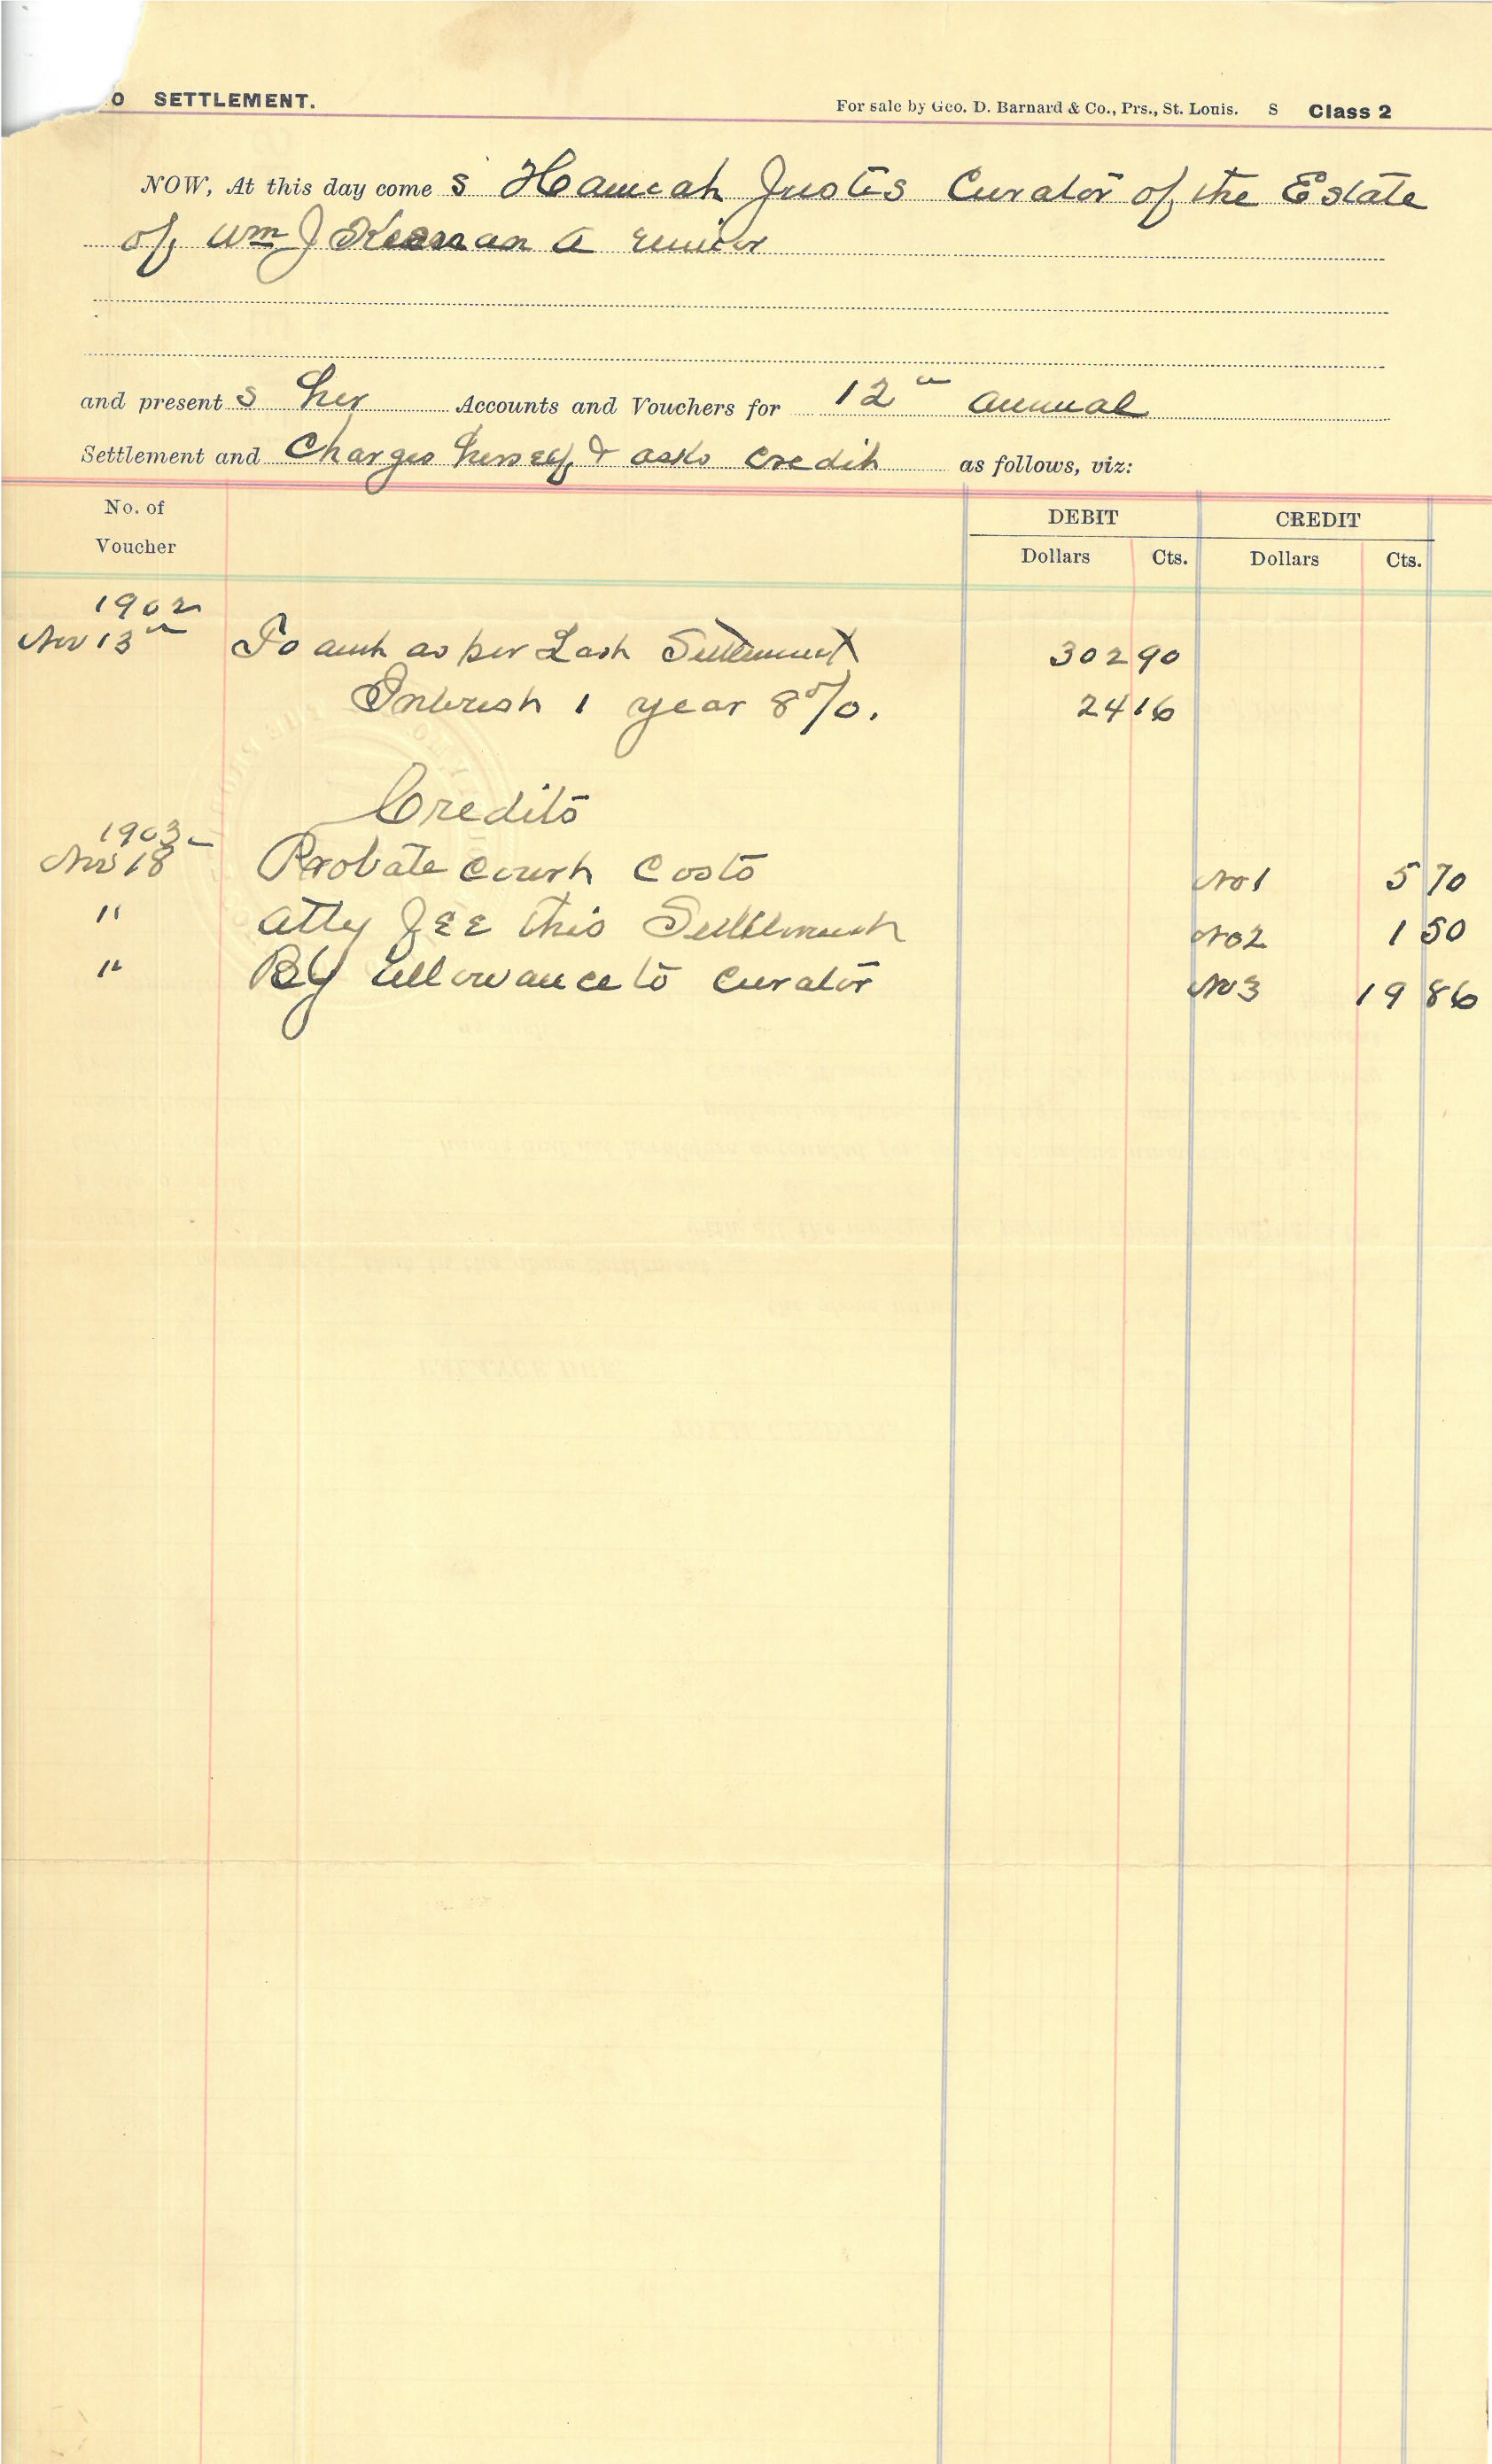 o SETTLEMENT. For sale by Geo. D. Barnard & Co., Prs., St. Louis. S Class 2
NOW, At this day come s Hannah Justis Curator of the Estate
of Wm J a minor
and present s her Accounts and Vouchers for 12th annual
Settlement and Charges herself & asks credit as follows, viz:
No. of Voucher DEBIT CREDIT
Dollars Cts. Dollars Cts.
1902
Nov 13th To amt as per Last Settlement 302 90
Interest 1 year 8%. 24 16
Credits
1903
Nov 18 Probate Court Costs No 1 5 70
" Atty Fee this Settlement No 2 1 50
" By allowance to Curator No 3 19 86